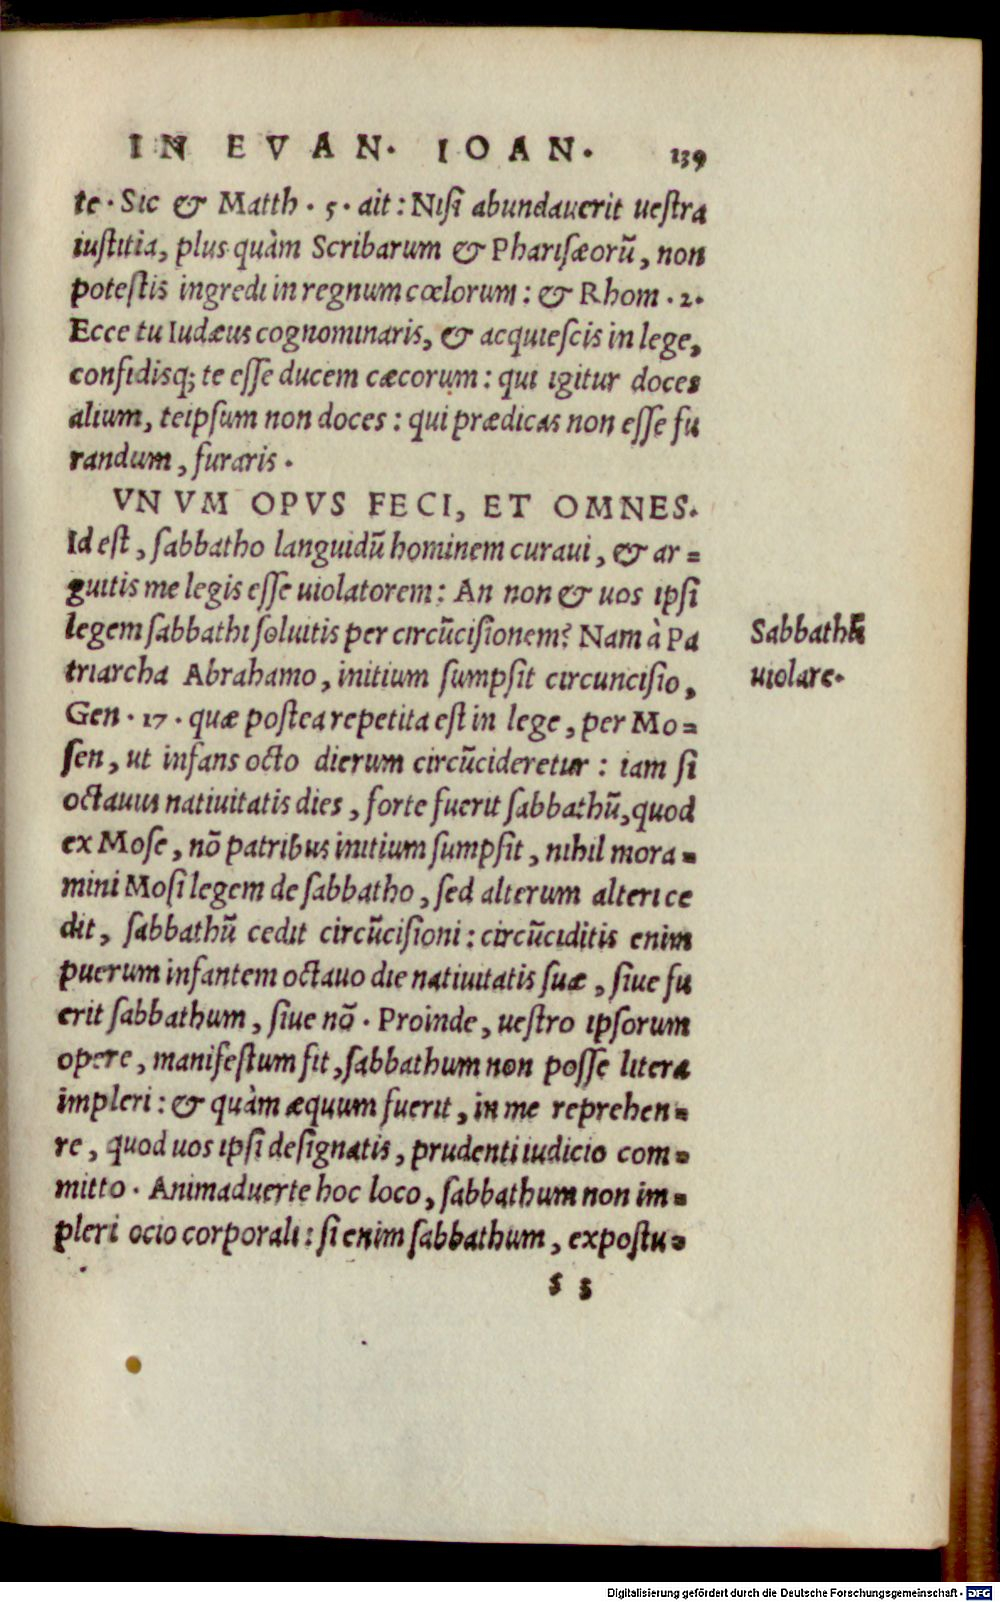 IN EVAN. IOAN. 139
te. Sic & Matth. 5. ait: Nisi abundauerit uestra
iustitia, plus quàm Scribarum & Pharisæorũ, non
potestis ingredi in regnum cœlorum: & Rhom. 2.
Ecce tu Iudæus cognominaris, & acquiescis in lege,
confidisq; te esse ducem cæcorum: qui igitur doces
alium, teipsum non doces: qui prædicas non esse fu
randum, furaris.
VNVM OPVS FECI, ET OMNES.
Id est, sabbatho languidũ hominem curaui, & ar=
guitis me legis esse uiolatorem: An non & uos ipsi
legem sabbathi soluitis per circũcisionem? Nam à Pa
triarcha Abrahamo, initium sumpsit circuncisio,
Gen. 17. quæ postea repetita est in lege, per Mo=
sen, ut infans octo dierum circũcideretur: iam si
octauus natiuitatis dies, forte fuerit sabbathũ, quod
ex Mose, nõ patribus initium sumpsit, nihil mora=
mini Mosi legem de sabbatho, sed alterum alteri ce
dit, sabbathũ cedit circũcisioni: circũciditis enim
puerum infantem octauo die natiuitatis suæ, siue fu
erit sabbathum, siue nõ. Proinde, uestro ipsorum
opere, manifestum fit, sabbathum non posse litera
impleri: & quàm æquum fuerit, in me reprehen=
re, quod uos ipsi designatis, prudenti iudicio com=
mitto. Animaduerte hoc loco, sabbathum non im=
pleri ocio corporali: si enim sabbathum, expostu=
s 5
Sabbathũ
uiolare.
Digitalisierung gefördert durch die Deutsche Forschungsgemeinschaft - DFG